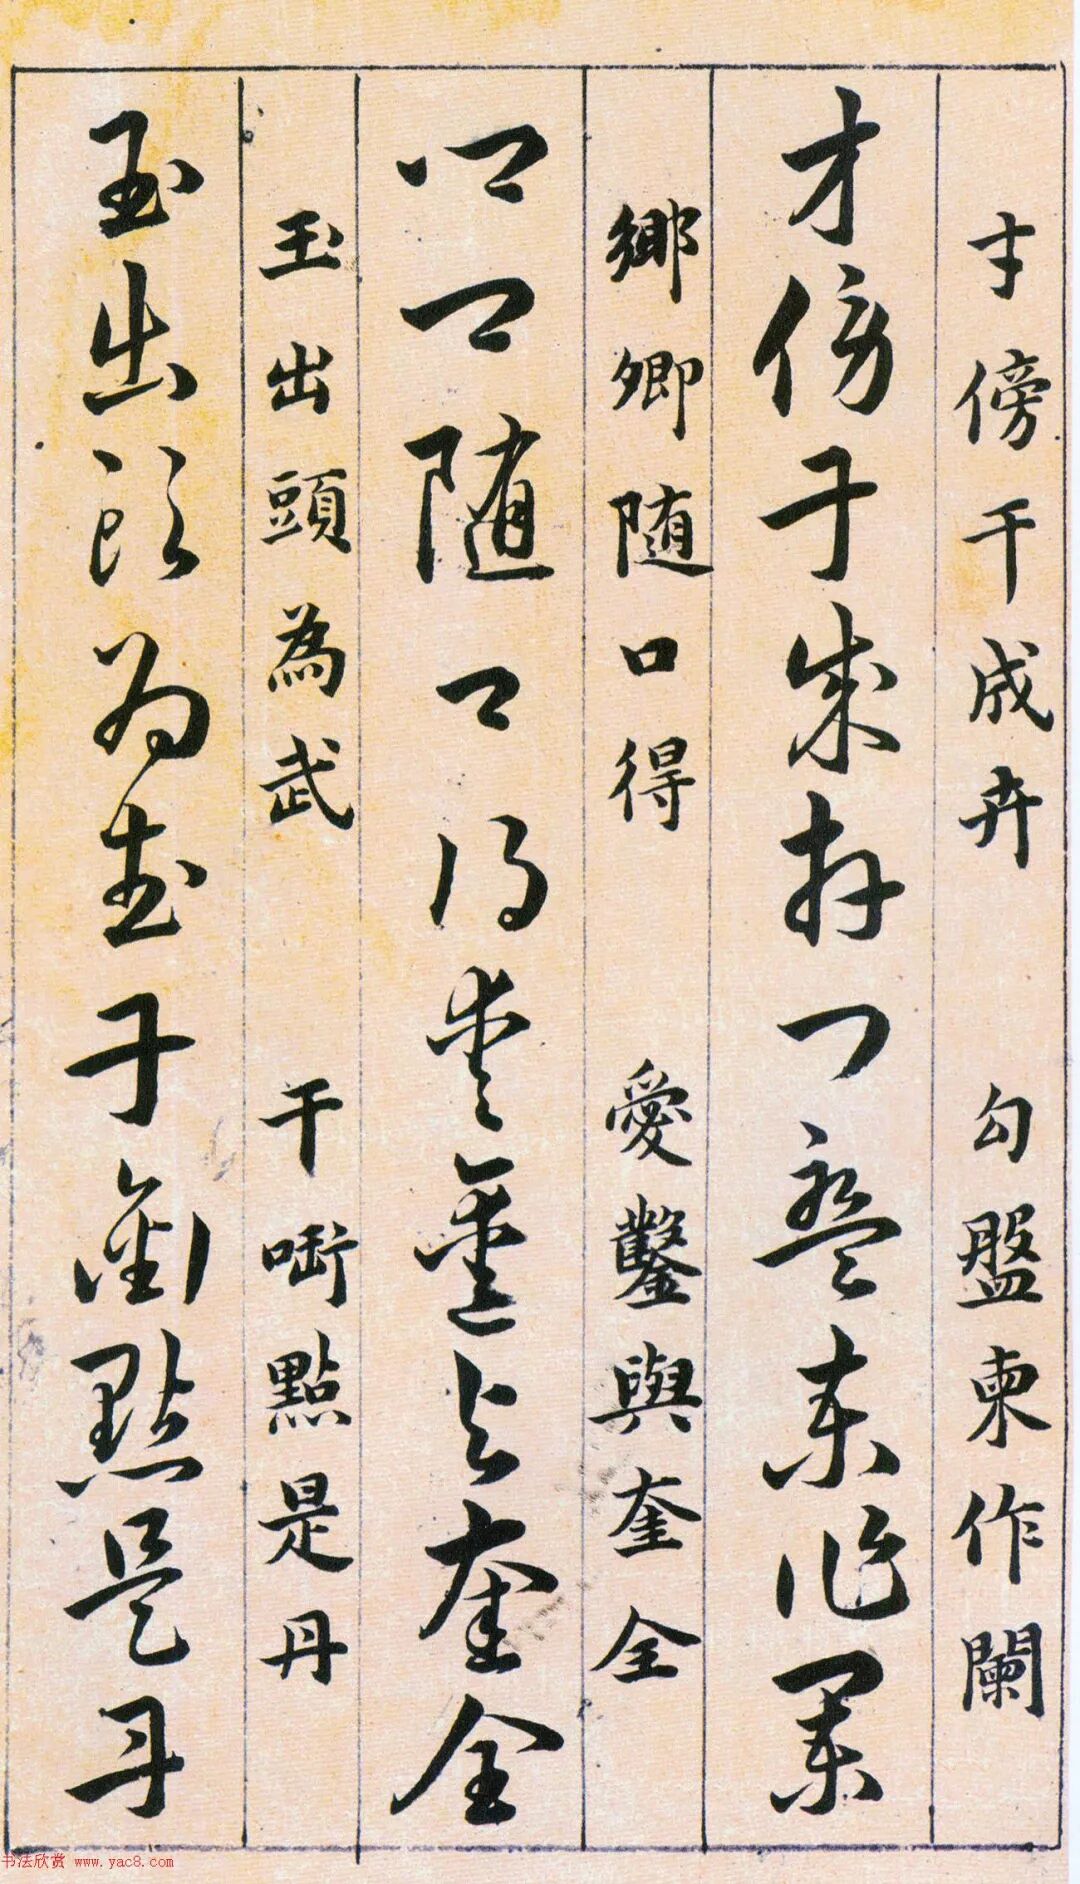 扌傍干成卉　勾盤柬作闌
才傍干成卉勾盤柬作闌
鄉卿随口得　愛鑿與奎全
鄉卿随口得愛鑿與奎全
玉出頭為武　干啣點是丹
玉出頭為武干啣點是丹
书法欣赏 www.yac8.com